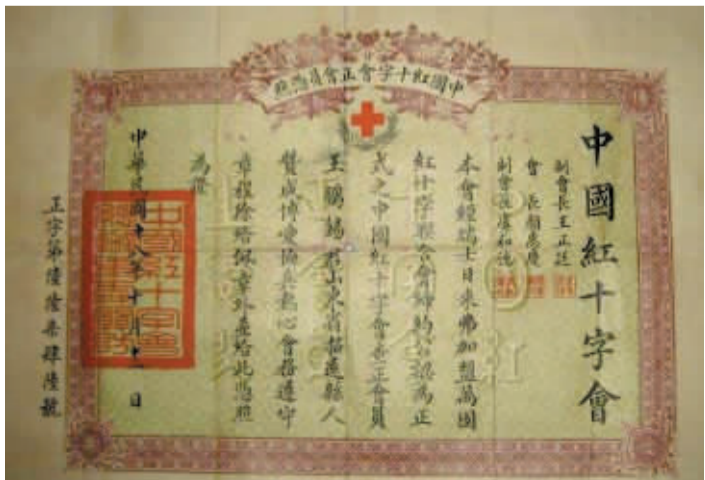 中國紅十字會正會員憑照
中國紅十字會
副會長王正廷
會長顏惠慶
副會長虞和德
本會經瑞士日來弗加盟萬國
紅十字聯合會締約公認為正
式之中國紅十字會
正會員
王鵬 君山東省招遠縣人
贊成博愛恤兵熱心會務遵守
章程除給佩章外并給此憑照
為證
中華民國十八年十月十一日
正字第陸陸柒肆陸號